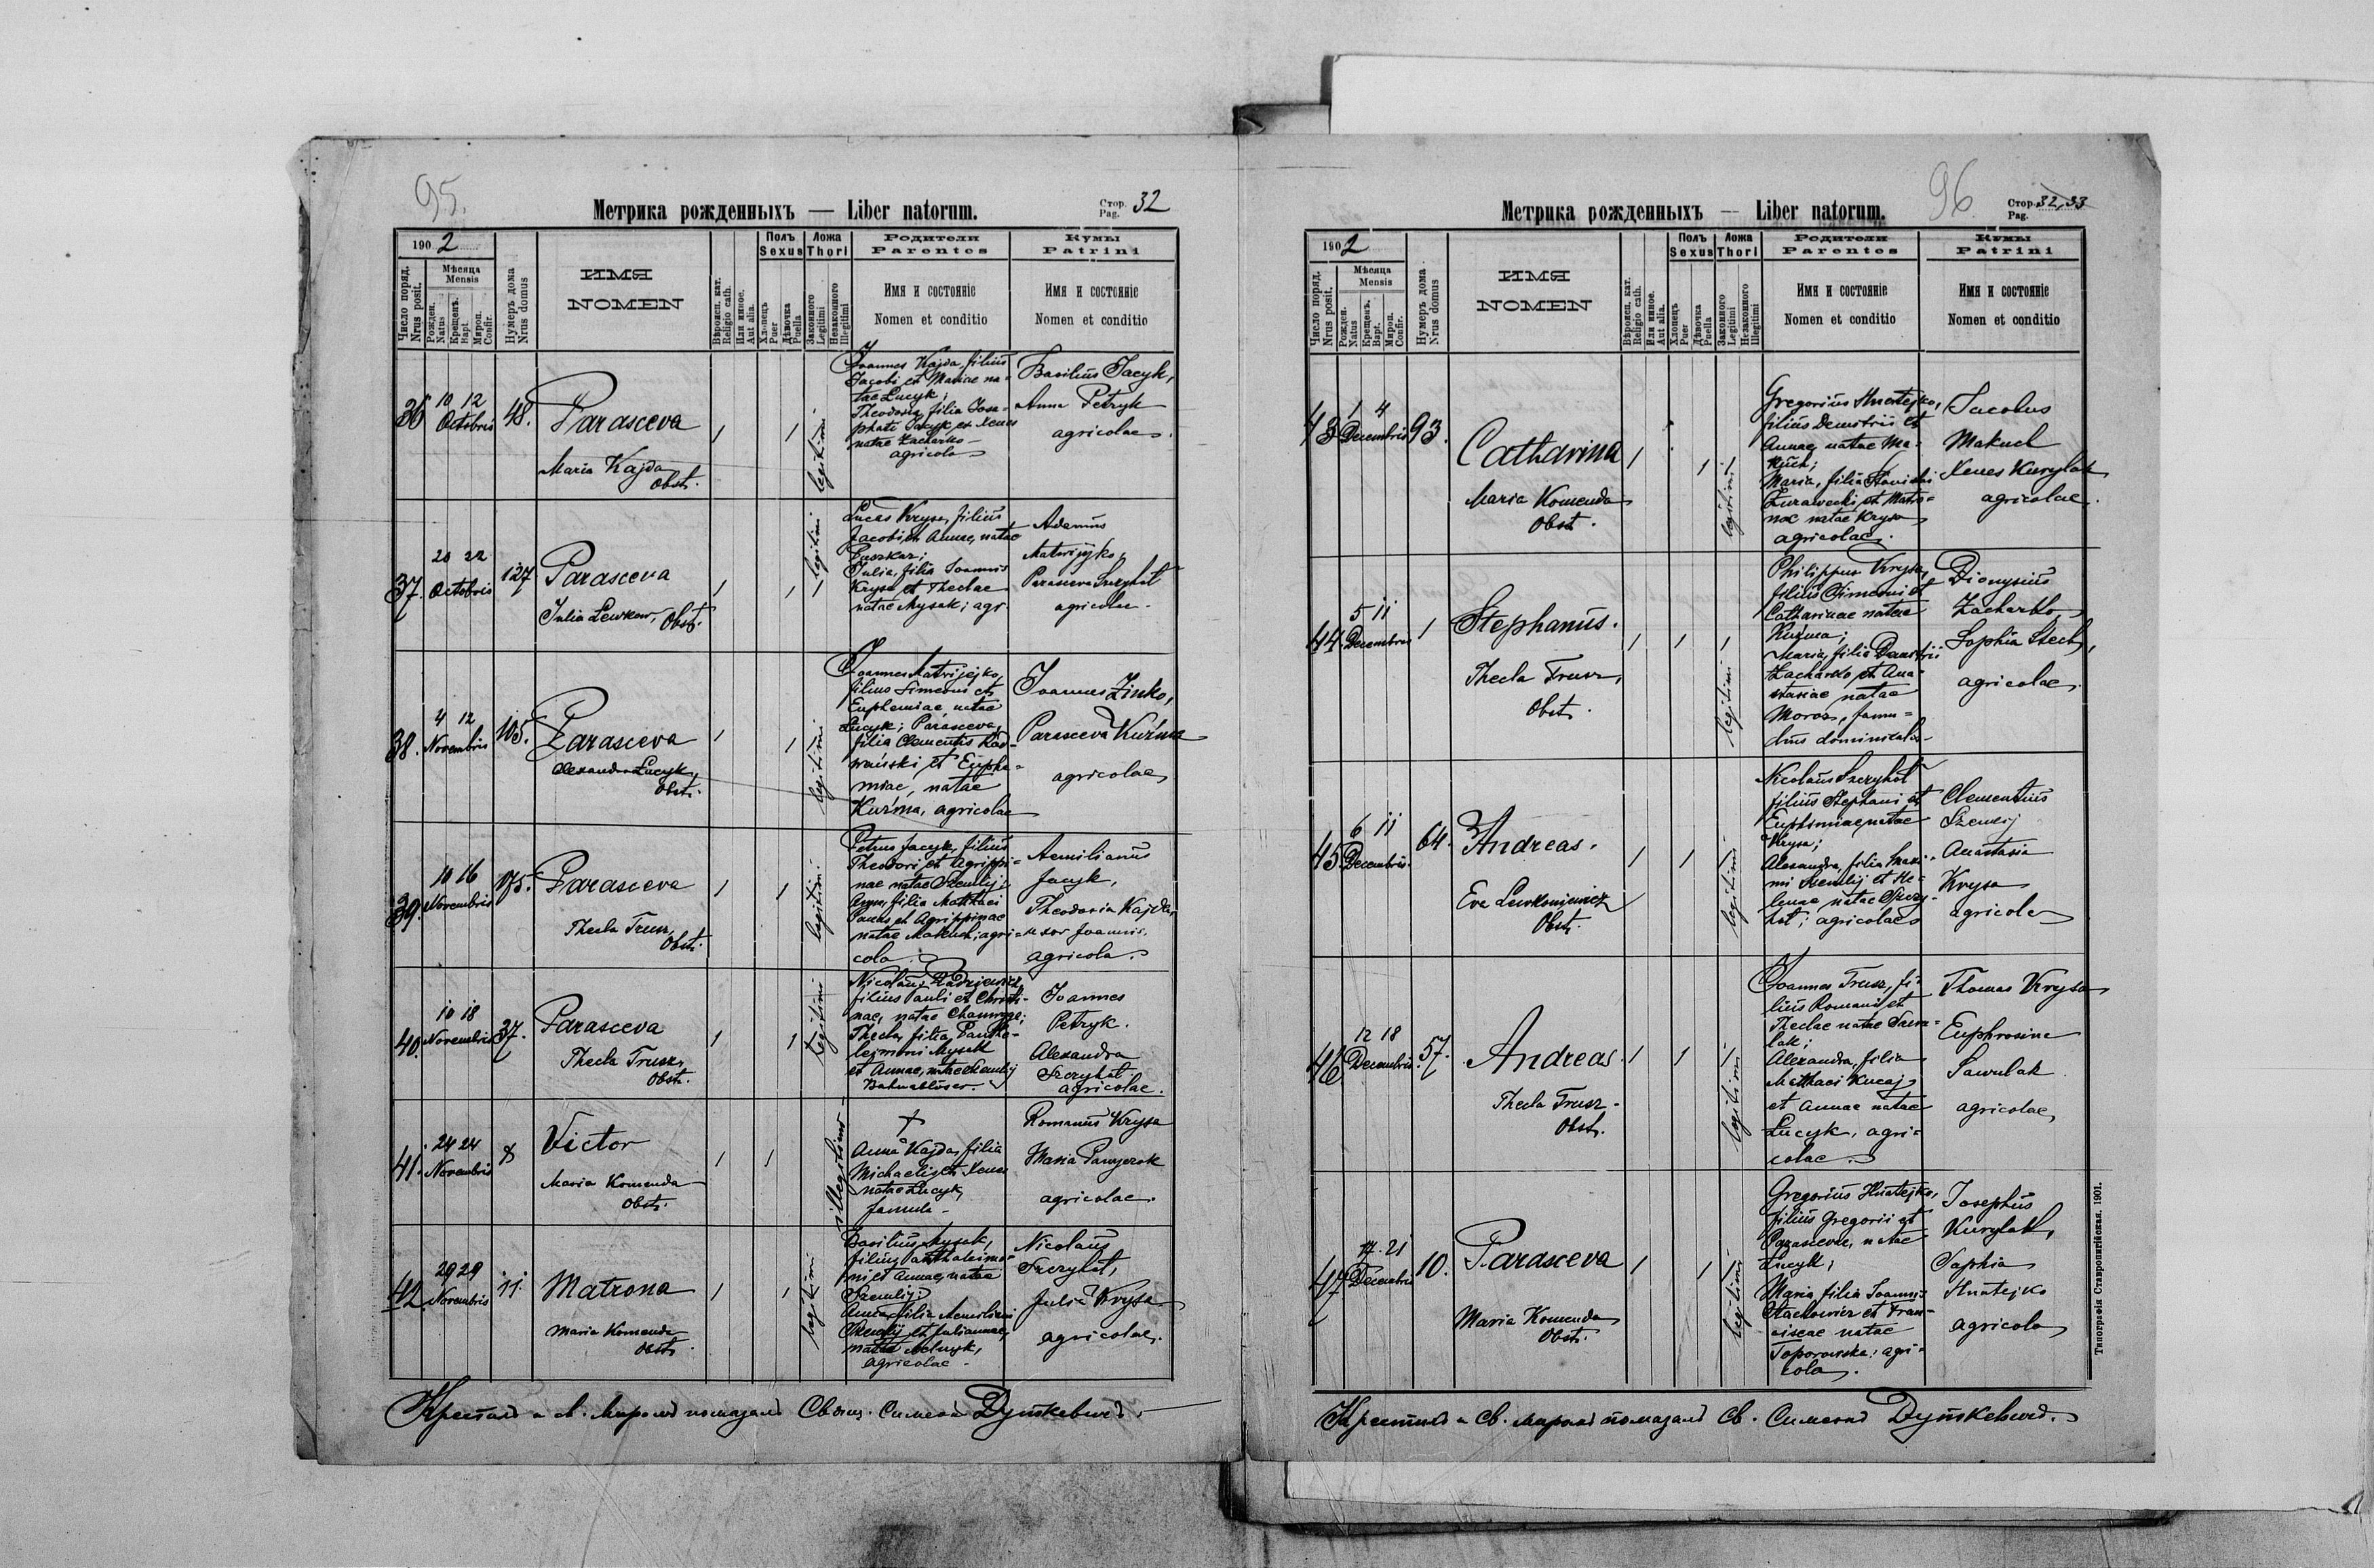 95.
Метрика рожденныхъ — Liber natorum.
Стор. Pag. 32
1902
Число поряд. Nrus posit.
Мѣсяца Mensis
Рожден. Natus
Крещенъ. Bapt.
Мѵроп. Confir.
Нумеръ дома Nrus domus
ИМЯ
NOMEN
Вѣроисп. кат. Religio cath.
Или инное. Aut alia.
Полъ Sexus
Хлопецъ Puer
Дѣвочка Puella
Ложа Thori
Законного Legitimi
Незаконного Illegitimi
Родители Parentes
Имя и состояніе
Nomen et conditio
Кумы Patrini
Имя и состояніе
Nomen et conditio
36 10 12 Octobris 48. Parasceva
Maria Kajda Obst.
legitimi
Joannes Kajda, filius
Jacobi et Mariae na-
tae Łucyk;
Theodosia, filia Josa-
phati Jacyk et Xenes
natae Zacharko
agricolae
Basilius Jacyk,
Anna Petryk
agricolae.
37. 20 22 Octobris 127 Parasceva
Julia Lewkow, Obst.
legitimi
Lucas Krysa, filius
Jacobi et Annae, natae
Puszkar;
Julia, filia Joannis
Krysa et Theclae
natae Mysak; agr.
Adamus
Matwijejko,
Parasceva Szczyhoł
agricolae.
38. 4 12 Novembris 105. Parasceva
Alexandra Łucyk, Obst.
legitimi
Joannes Matwijejko,
filius Simeonis et
Euphemiae, natae
Łucyk; Parasceva,
filia Clementis Rad-
wański et Euphe-
miae, natae
Kuźma, agricolae
Joannes Zinko,
Parasceva Kuźma
agricolae
39. 10 16 Novembris 175. Parasceva
Thecla Trusz, Obst.
legitimi
Petrus Jacyk, filius
Theodori et Agrippi-
nae natae Szemlij;
Anna, filia Matthaei
Panas et Agrippinae
natae Makuch; agri-
colae.
Aemilianus
Jacyk,
Theodosia Kajda,
uxor Joannis.
agricolae.
40. 10 18 Novembris 37. Parasceva
Thecla Trusz, Obst.
legitimi
filius Pauli et Christi-
Thecla, filia Pante-
lejmonis Mysak
et Annae, natae Szemlij
Joannes
Petryk.
Alexandra
Szczyhoł
agricolae.
41. 24 24 Novembris 8 Victor
Maria Komenda Obst.
illegitimi
Anna Kajda, filia
Michaelis et Xenes
natae Łucyk,
famula
Romanus Krysa
Maria Panyczok
agricolae.
42 29 29 Novembris 11. Matrona
Maria Komenda Obst.
legitimi
Basilius Mysak,
filius Panthaleimo-
nis et Annae, natae
Szemlij;
Anna, filia Aemiliani
Szemlij et Juliannae,
natae Melnyk,
agricolae
Nicolaus
Szczyhoł,
Julia Krysa
agricolae.
Крестилъ и св. Мѵромъ помазалъ Свящ. Симеонъ Дуткевичъ.
96
Метрика рожденныхъ — Liber natorum.
Стор. Pag. 32, 33
1902
Число поряд. Nrus posit.
Мѣсяца Mensis
Рожден. Natus
Крещенъ. Bapt.
Мѵроп. Confir.
Нумеръ дома Nrus domus
ИМЯ
NOMEN
Вѣроисп. кат. Religio cath.
Или инное. Aut alia.
Полъ Sexus
Хлопецъ Puer
Дѣвочка Puella
Ложа Thori
Законного Legitimi
Незаконного Illegitimi
Родители Parentes
Имя и состояніе
Nomen et conditio
Кумы Patrini
Имя и состояніе
Nomen et conditio
43 1 4 Decembris 93. Catharina
Maria Komenda Obst.
legitimi
Gregorius Hnatejko,
filius Demetrii et
Annae, natae Ma-
kuch;
Maria, filia Stanislai
Żurawecki et Matro-
nae natae Krysa
agricolae.
Jacobus
Makuch
Xenes Kurylak
agricolae.
44. 5 11 Decembris 1 Stephanus.
Thecla Trusz, Obst.
legitimi
Philippus Krysa,
filius Simeonis et
Catharinae natae
Kuźma;
Maria, filia Demetrii
Zacharko et Ana-
stasiae natae
Moroz, famu-
lus dominicalis
Dionysius
Zacharko,
Sophia Stech,
agricolae.
45 6 11 Decembris 64. Andreas.
Eva Lewkoniewicz Obst.
legitimi
Nicolaus Szczyhoł
filius Stephani et
Euphemiae, natae
Krysa;
Alexandra, filia Maxi-
mi Szemlij et He-
lenae natae Szczy-
hoł; agricolae
Clementius
Szemlij
Anastasia
Krysa
agricolae
46 12 18 Decembris 57. Andreas.
Thecla Trusz. Obst.
legitimi
Joannes Trusz, fi-
lius Romani et
Theclae natae Sawu-
lak;
Alexandra, filia
Matthaei Kucaj
et Annae natae
Łucyk, agri-
colae.
Thomas Krysa
Euphrosine
Sawulak
agricolae
47 17. 21 Decembris 10. Parasceva
Maria Komenda Obst.
legitimi
Gregorius Hnatejko,
filius Gregorii et
Parascevae, natae
Łucyk;
Maria, filia Joannis
Stachowicz et Fran-
ciscae natae
Toporowska; agri-
colae.
Josephus
Kurylak,
Sophia
Hnatejko
agricolae
Крестилъ и св. мѵромъ помазалъ Св. Симеонъ Дуткевичъ.
Типографія Ставропигійская. 1901.